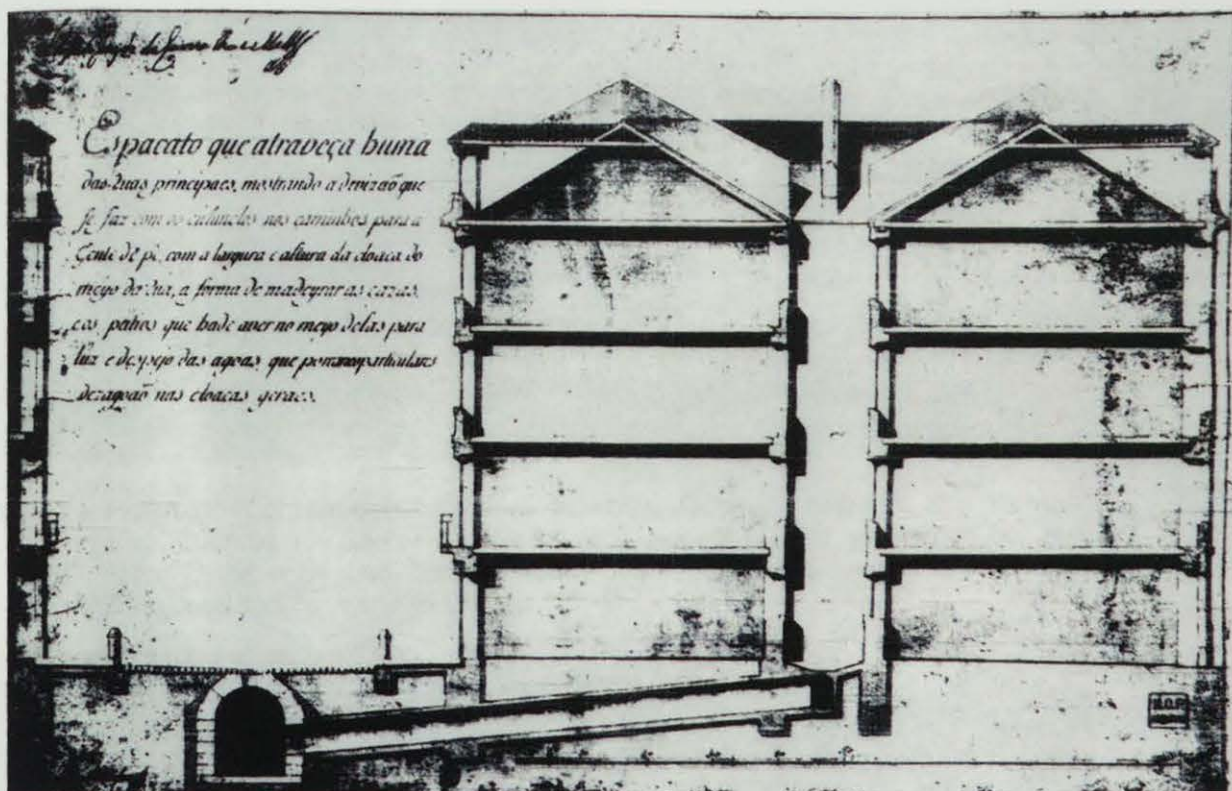 Espacato que atraveça huma
das ruas principaes, mostrando a divizaõ que
se faz com os culunelos nos caminhos para a
Gente de pè, com a largura e altura da cloaca do
meyo da rua, a forma de madeyrar as cazas,
e os, patios que hade aver no meyo delas para
luz e despejo das agoas, que por canos particulares
dezagoaõ nas cloacas geraes.